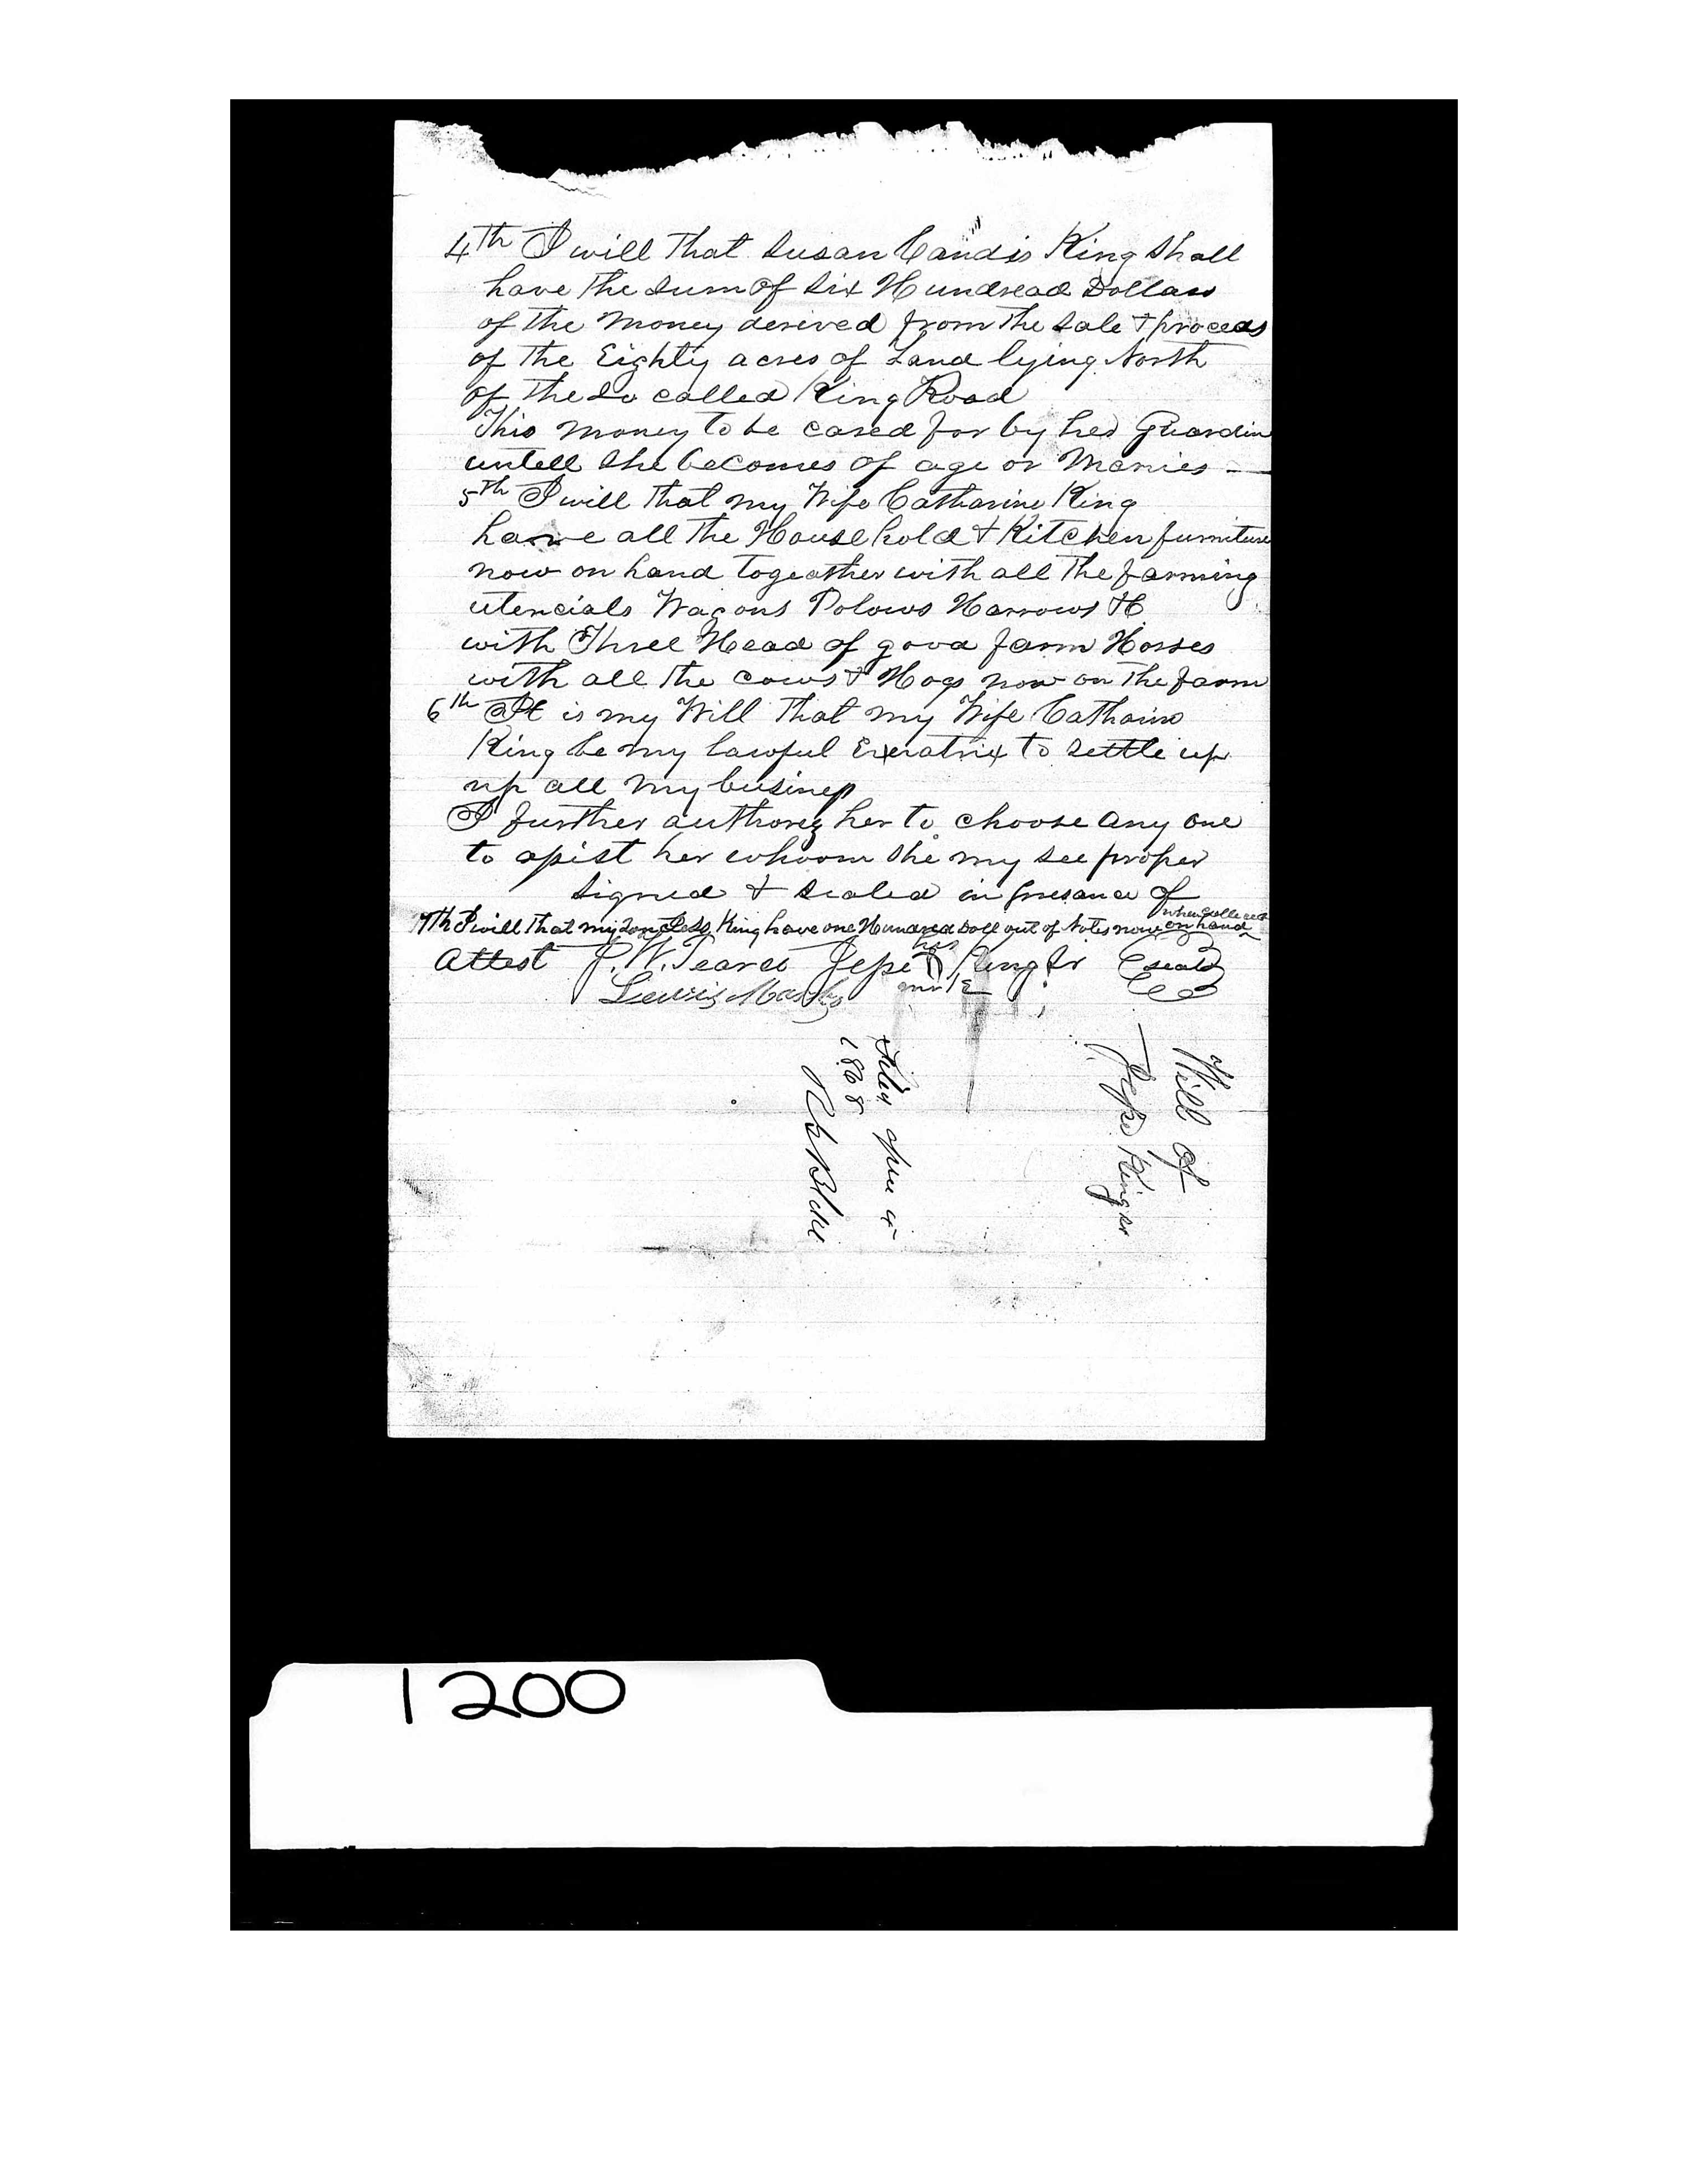 4th I will That Susan Candis King Shall
have The Sum of Six Hundread Dollars
of The Money derived from The Sale & proceeds
of The Eighty acres of Land lying North
of The So called King Road
This money to be cared for by her Guardin
untell She becomes of age or Marries -
5th I will That my Wife Catharine King
have all The House hold & Kitchen furniture
now on hand togeather with all The farming
utencials Wagons Polows Harrows &c
with Three Head of good farm Horses
with all The cows & Hogs now on The farm
6th It is my Will That my Wife Catharine
King be my lawful Exeratrix to Settle up
up all my business
I further authorez her to choose any one
to assist her whoom She my see proper
Signed & Sealed in presance of
when collected
7th I will That my Son King have one Hundred Doll out of Notes now on hand
his
Attest J. W. Teares Jesse King Sr Seal
Lewis mark
Will of
Jesse King Sr
Filed
1868
1200